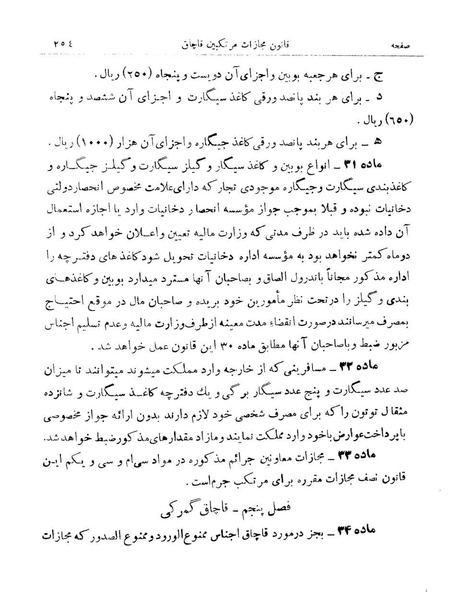 صفحه قانون مجازات مرتکبین قاچاق ۲۵٤
ج ـ برای هر جعبه بوبین و اجزای آن دویست و پنجاه (۲۵۰) ریال .
د ـ برای هر بند پانصد ورقی کاغذ سیگارت و اجزای آن ششصد و پنجاه
(۶۵۰) ریال .
ه ـ برای هر بند پانصد ورقی کاغذ جیگاره و اجزای آن هزار (۱۰۰۰) ریال .
ماده ۳۱ ـ انواع بوبین و کاغذ سیگار و گیلز سیگارت و گیلز جیگاره و
کاغذ بندی سیگارت و جیگاره موجودی تجار که دارای علامت مخصوص انحصار دولتی
دخانیات نبوده و قبلا بموجب جواز مؤسسه انحصار دخانیات وارد یا اجازه استعمال
آن داده شده باید در ظرف مدتی که وزارت مالیه تعیین و اعلان خواهد کرد و از
دوماه کمتر نخواهد بود به مؤسسه اداره دخانیات تحویل شود کاغذ های دفترچه را
اداره مذکور مجاناً باندرول الصاق و بصاحبان آنها مسترد میدارد بوبین و کاغذهای
بندی و گیلز را در تحت نظر مأمورین خود بریده و صاحبان مال در موقع احتیاج
بمصرف میرسانند در صورت انقضاء مدت معینه از طرف وزارت مالیه و عدم تسلیم اجناس
مزبور ضبط و با صاحبان آنها مطابق ماده ۳۰ این قانون عمل خواهد شد .
ماده ۳۲ ـ مسافرینی که از خارجه وارد مملکت میشوند میتوانند تا میزان
صد عدد سیگارت و پنج عدد سیگار برگی و یك دفترچه کاغذ سیگارت و شانزده
مثقال توتون را که برای مصرف شخصی خود لازم دارند بدون ارائه جواز مخصوصی
با پرداخت عوارض باخود وارد مملکت نمایند و مازاد مقدارهای مذکور ضبط خواهد شد.
ماده ۳۳ ـ مجازات معاونین جرائم مذکوره در مواد سی ام و سی و یکم این
قانون نصف مجازات مقرره برای مرتکب جرم است .
فصل پنجم ـ قاچاق گمرکی
ماده ۳۴ ـ بجز در مورد قاچاق اجناس ممنوع الورود و ممنوع الصدور که مجازات